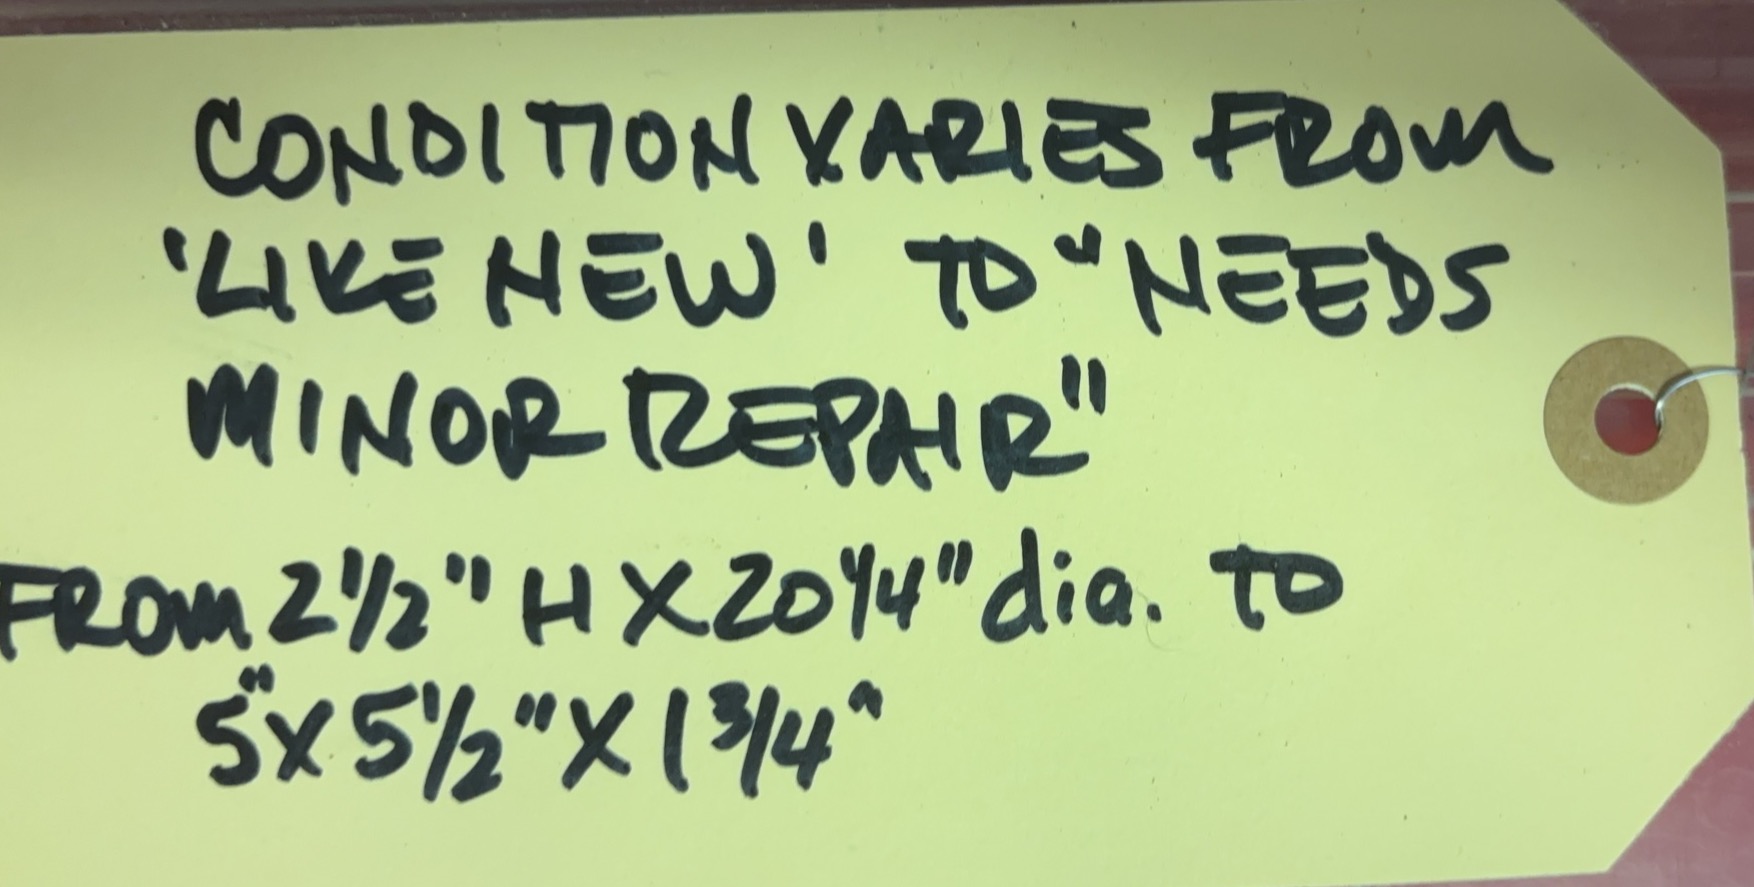 CONDITION VARIES FROM
'LIKE NEW' TO "NEEDS
MINOR REPAIR"
FROM 2 1/2" H X 20 1/4" dia. TO
5" X 5 1/2" X 1 3/4"